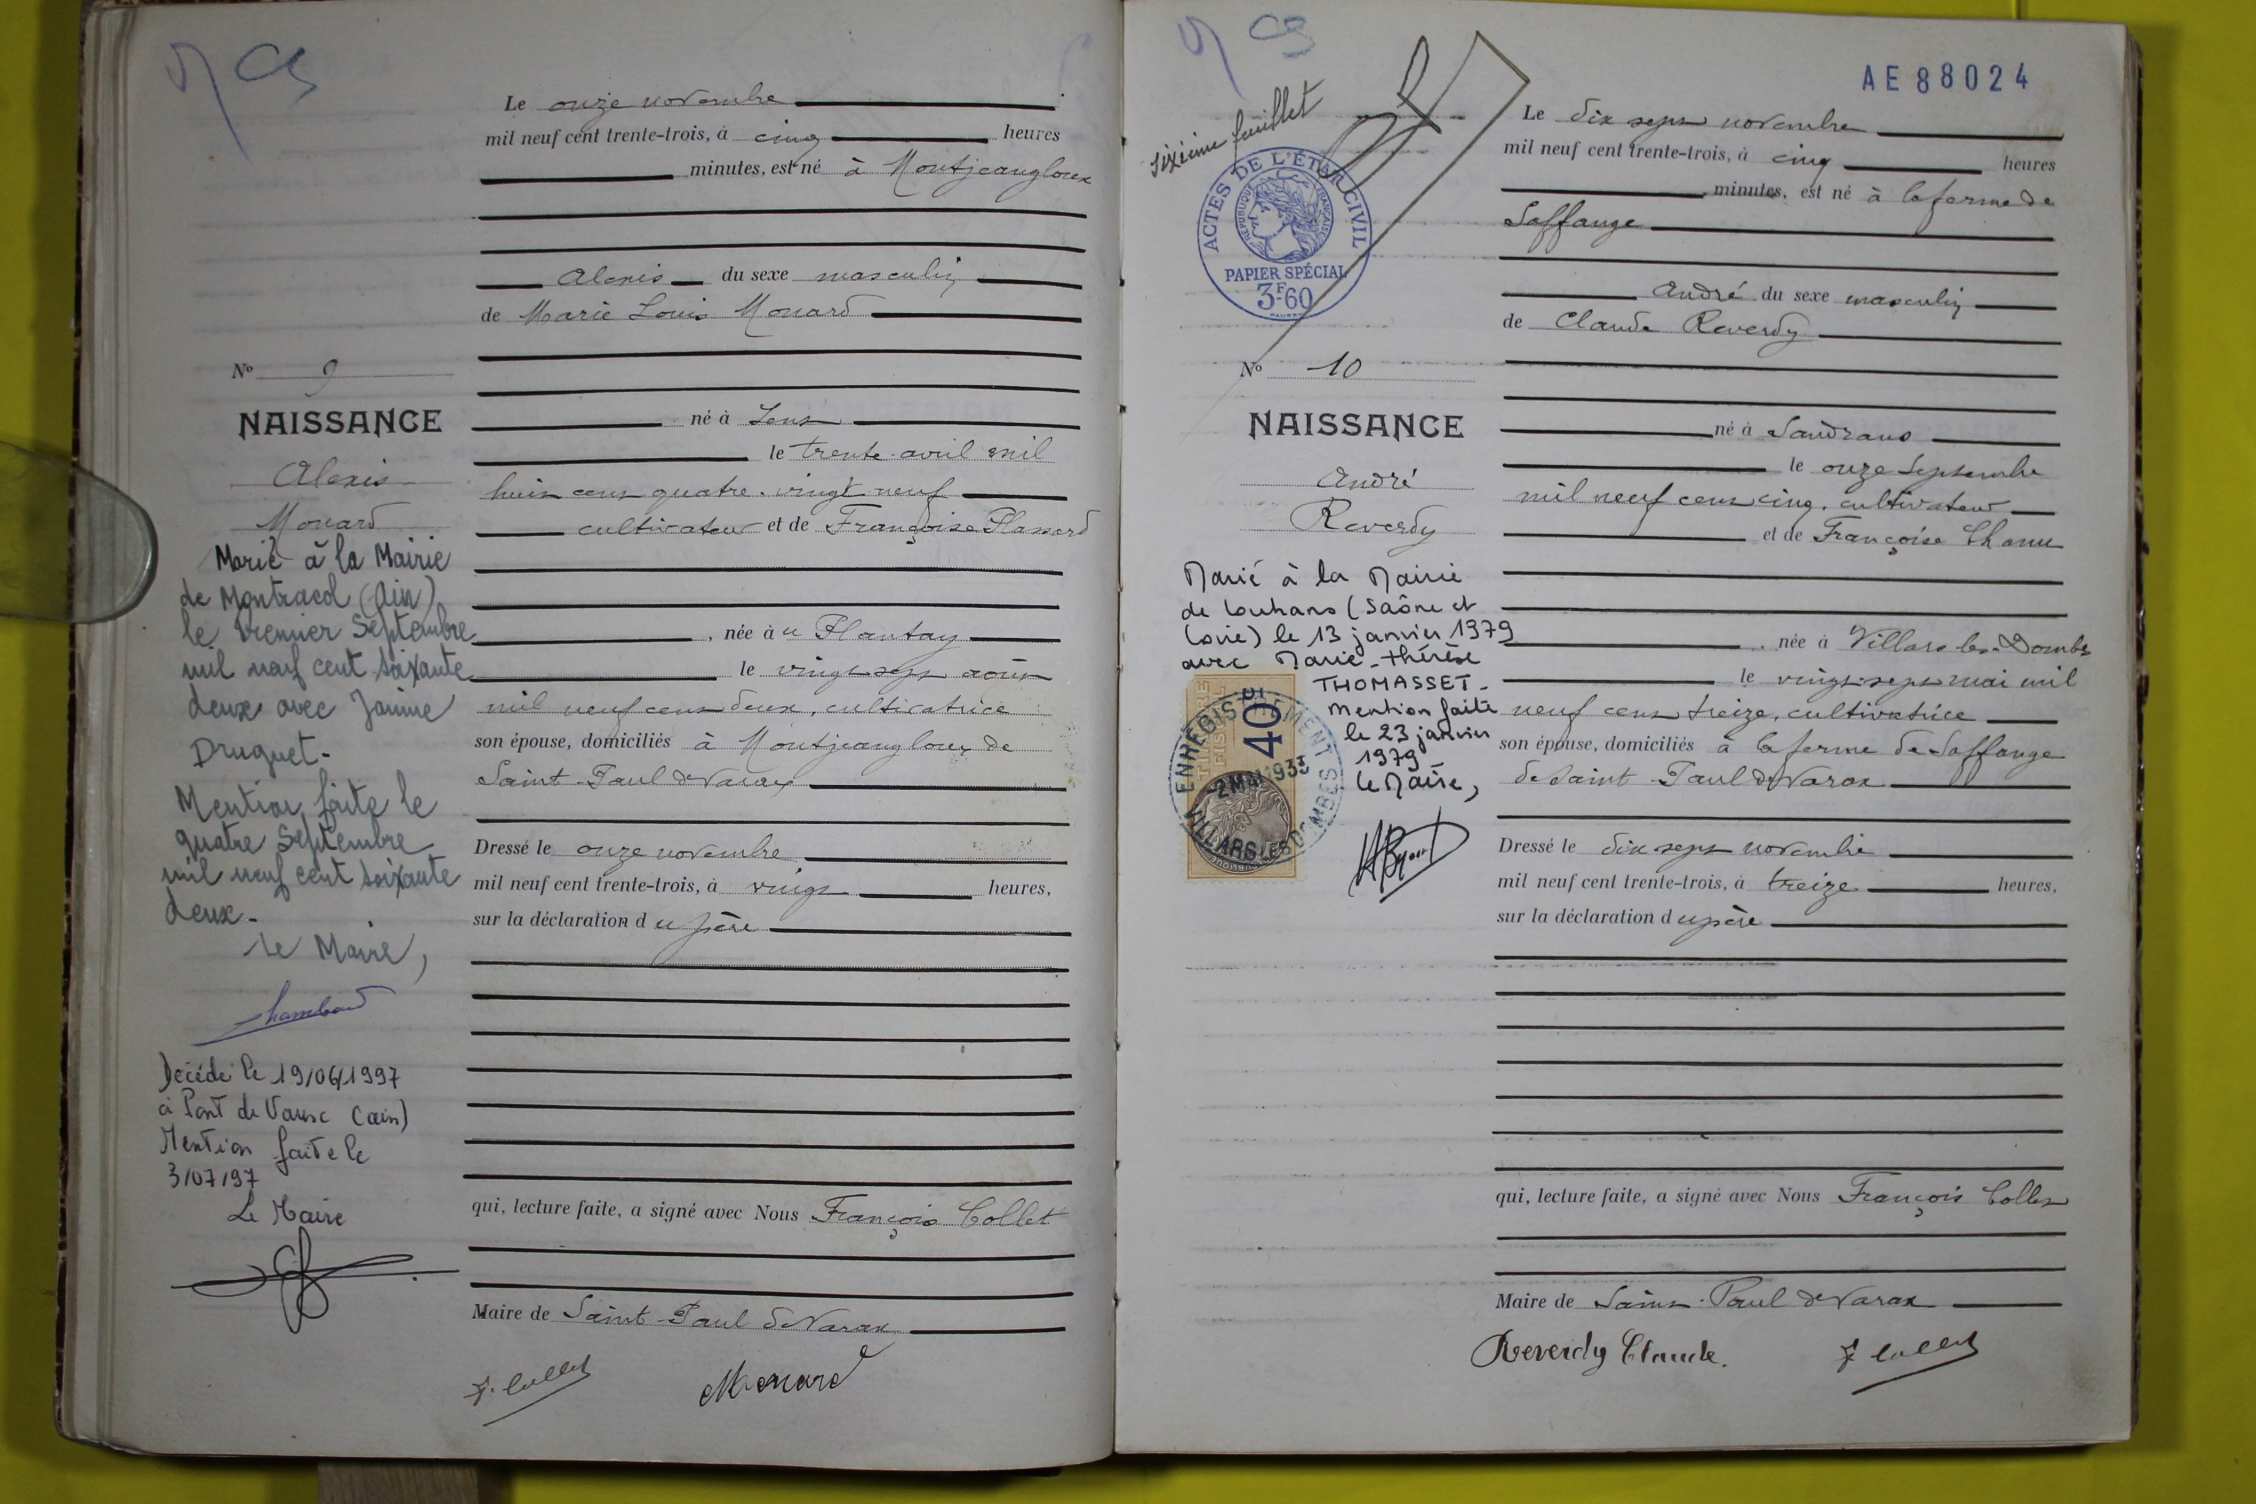 Le onze novembre
mil neuf cent trente-trois, à cinq heures
minutes, est né à Montjeangloux
Alexis du sexe masculin
de Marie Louis Monard
né à Lent
le trente avril mil
huit cent quatre-vingt neuf
cultivateur et de Françoise Plassard
née au Plantay
le vingt sept août
mil neuf cent deux, cultivatrice
son épouse, domiciliés à Montjeangloux de
Saint-Paul de Varax
Dressé le onze novembre
mil neuf cent trente-trois, à vingt heures,
sur la déclaration du père
qui, lecture faite, a signé avec Nous François Collet
Maire de Saint-Paul de Varax
F. Collet
Monard
No 9
NAISSANCE
Alexis
Monard
Marié à la Mairie
de Montracol (Ain)
le Premier Septembre
mil neuf cent soixante
deux avec Janine
Druguet.
Mention faite le
quatre Septembre
mil neuf cent soixante
deux.
Le Maire,
Chambard
Décédé le 19/06/1997
à Pont de Vaux (ain)
Mention faite le
3/07/97
Le Maire
AE88024
Sixième feuillet
ACTES DE L'ÉTAT CIVIL
RÉPUBLIQUE FRANÇAISE
PAPIER SPÉCIAL
3F60
Le dix sept novembre
mil neuf cent trente-trois, à cinq heures
minutes, est né à la ferme de
Saffange
André du sexe masculin
de Claude Reverdy
né à Sandrans
le onze Septembre
mil neuf cent cinq, cultivateur
et de Françoise Chanu
née à Villars les Dombes
le vingt-sept mai mil
neuf cent treize, cultivatrice
son épouse, domiciliés à la ferme de Saffange
de Saint-Paul de Varax
Dressé le dix sept novembre
mil neuf cent trente-trois, à treize heures,
sur la déclaration du père
qui, lecture faite, a signé avec Nous François Collet
Maire de Saint-Paul de Varax
Reverdy Claude.
F Collet
No 10
NAISSANCE
André
Reverdy
Marié à la Mairie
de Louhans (Saône et
Loire) le 13 janvier 1979
avec Marie-Thérèse
THOMASSET-
Mention faite
le 23 janvier
1979
Le Maire,
ENREGISTREMENT
40
2 MAI 1933
VILLARS LES DOMBES